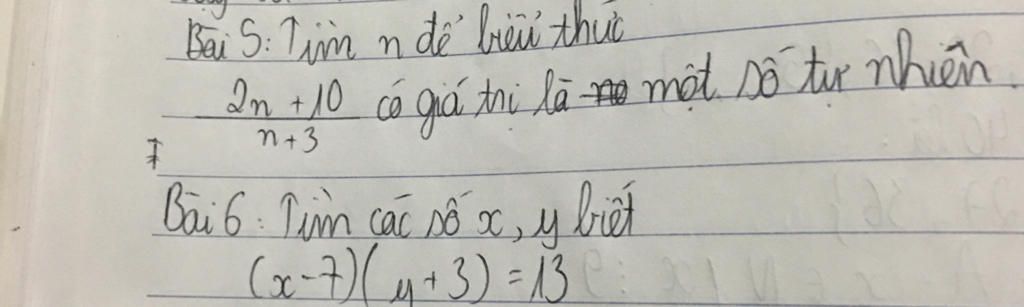 Bài 5: Tìm n để biểu thức
2n + 10 / n + 3 có giá trị là một số tự nhiên.
Bài 6: Tìm các số x, y biết
(x - 7)(y + 3) = 13